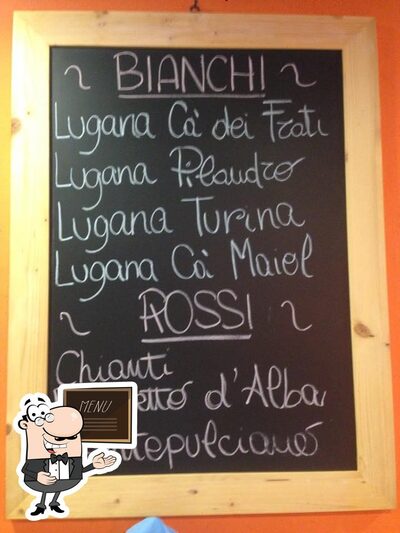 ~ BIANCHI ~
Lugana Ca' dei Frati
Lugana Pilandro
Lugana Turina
Lugana Ca' Maiol
~ ROSSI ~
Chianti
d'Alba
MENU